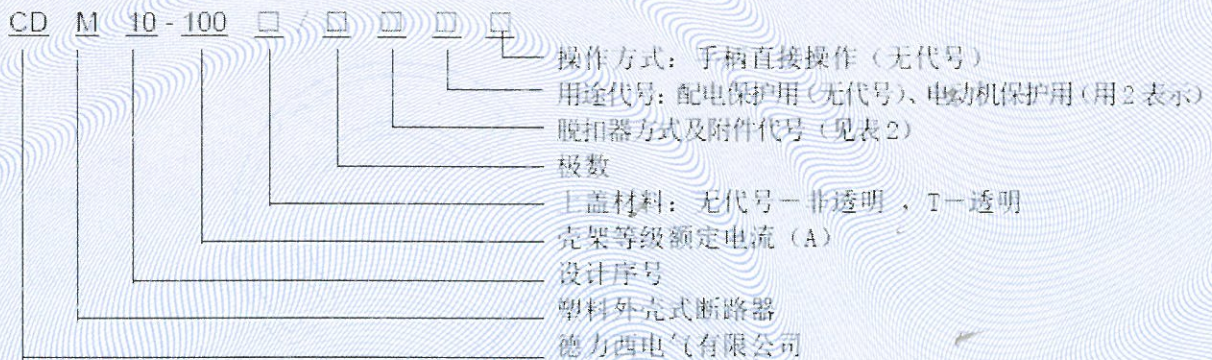 CD M 10-100 □/□ □ □ □
操作方式：手柄直接操作（无代号）
用途代号：配电保护用（无代号）、电动机保护用（用2表示）
脱扣器方式及附件代号（见表2）
极数
上盖材料：无代号－非透明，T－透明
壳架等级额定电流（A）
设计序号
塑料外壳式断路器
德力西电气有限公司